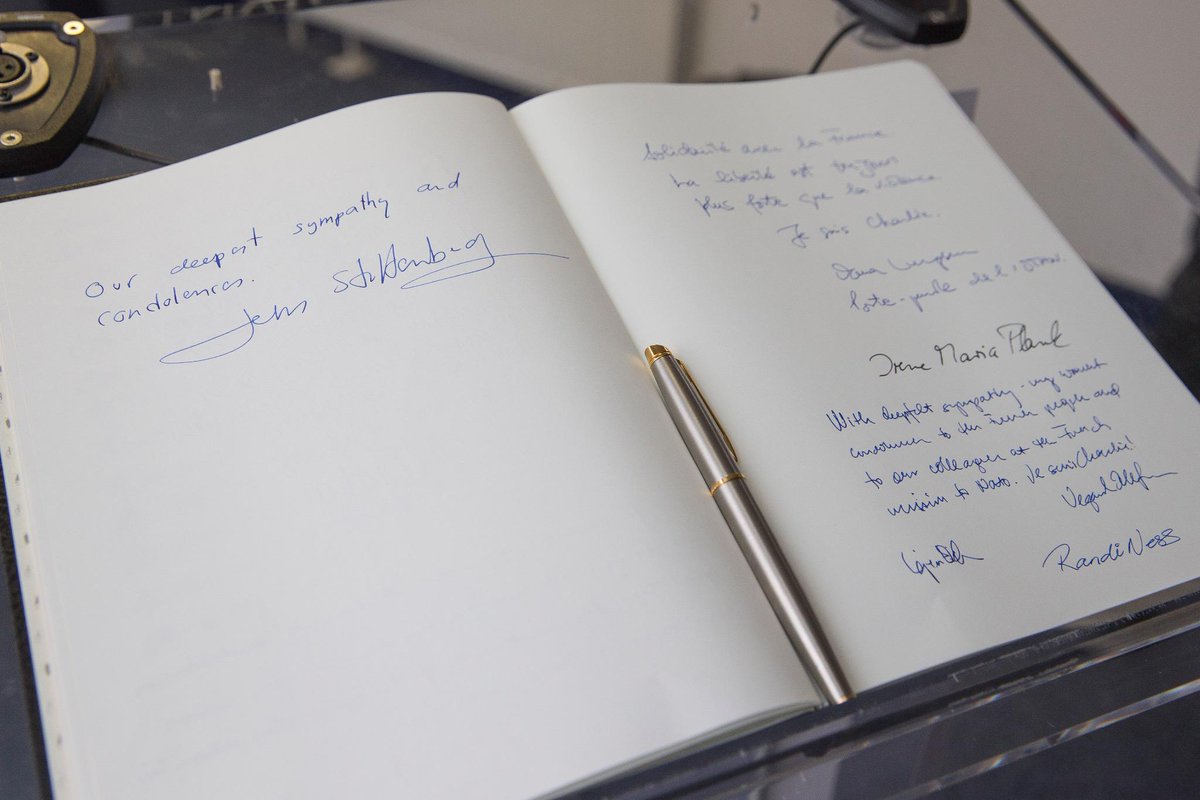 Our deepest sympathy and
condolences.
Jens Stoltenberg
Solidarité avec la France
La liberté est toujours
plus forte que la violence
Je suis Charlie.
Oana Lungescu
Porte-parole de l'OTAN
Irene Maria Plank
With deepfelt sympathy - my
to the French people and
to our colleagues at the French
mission to NATO. Je suis Charlie!
Randi Ness